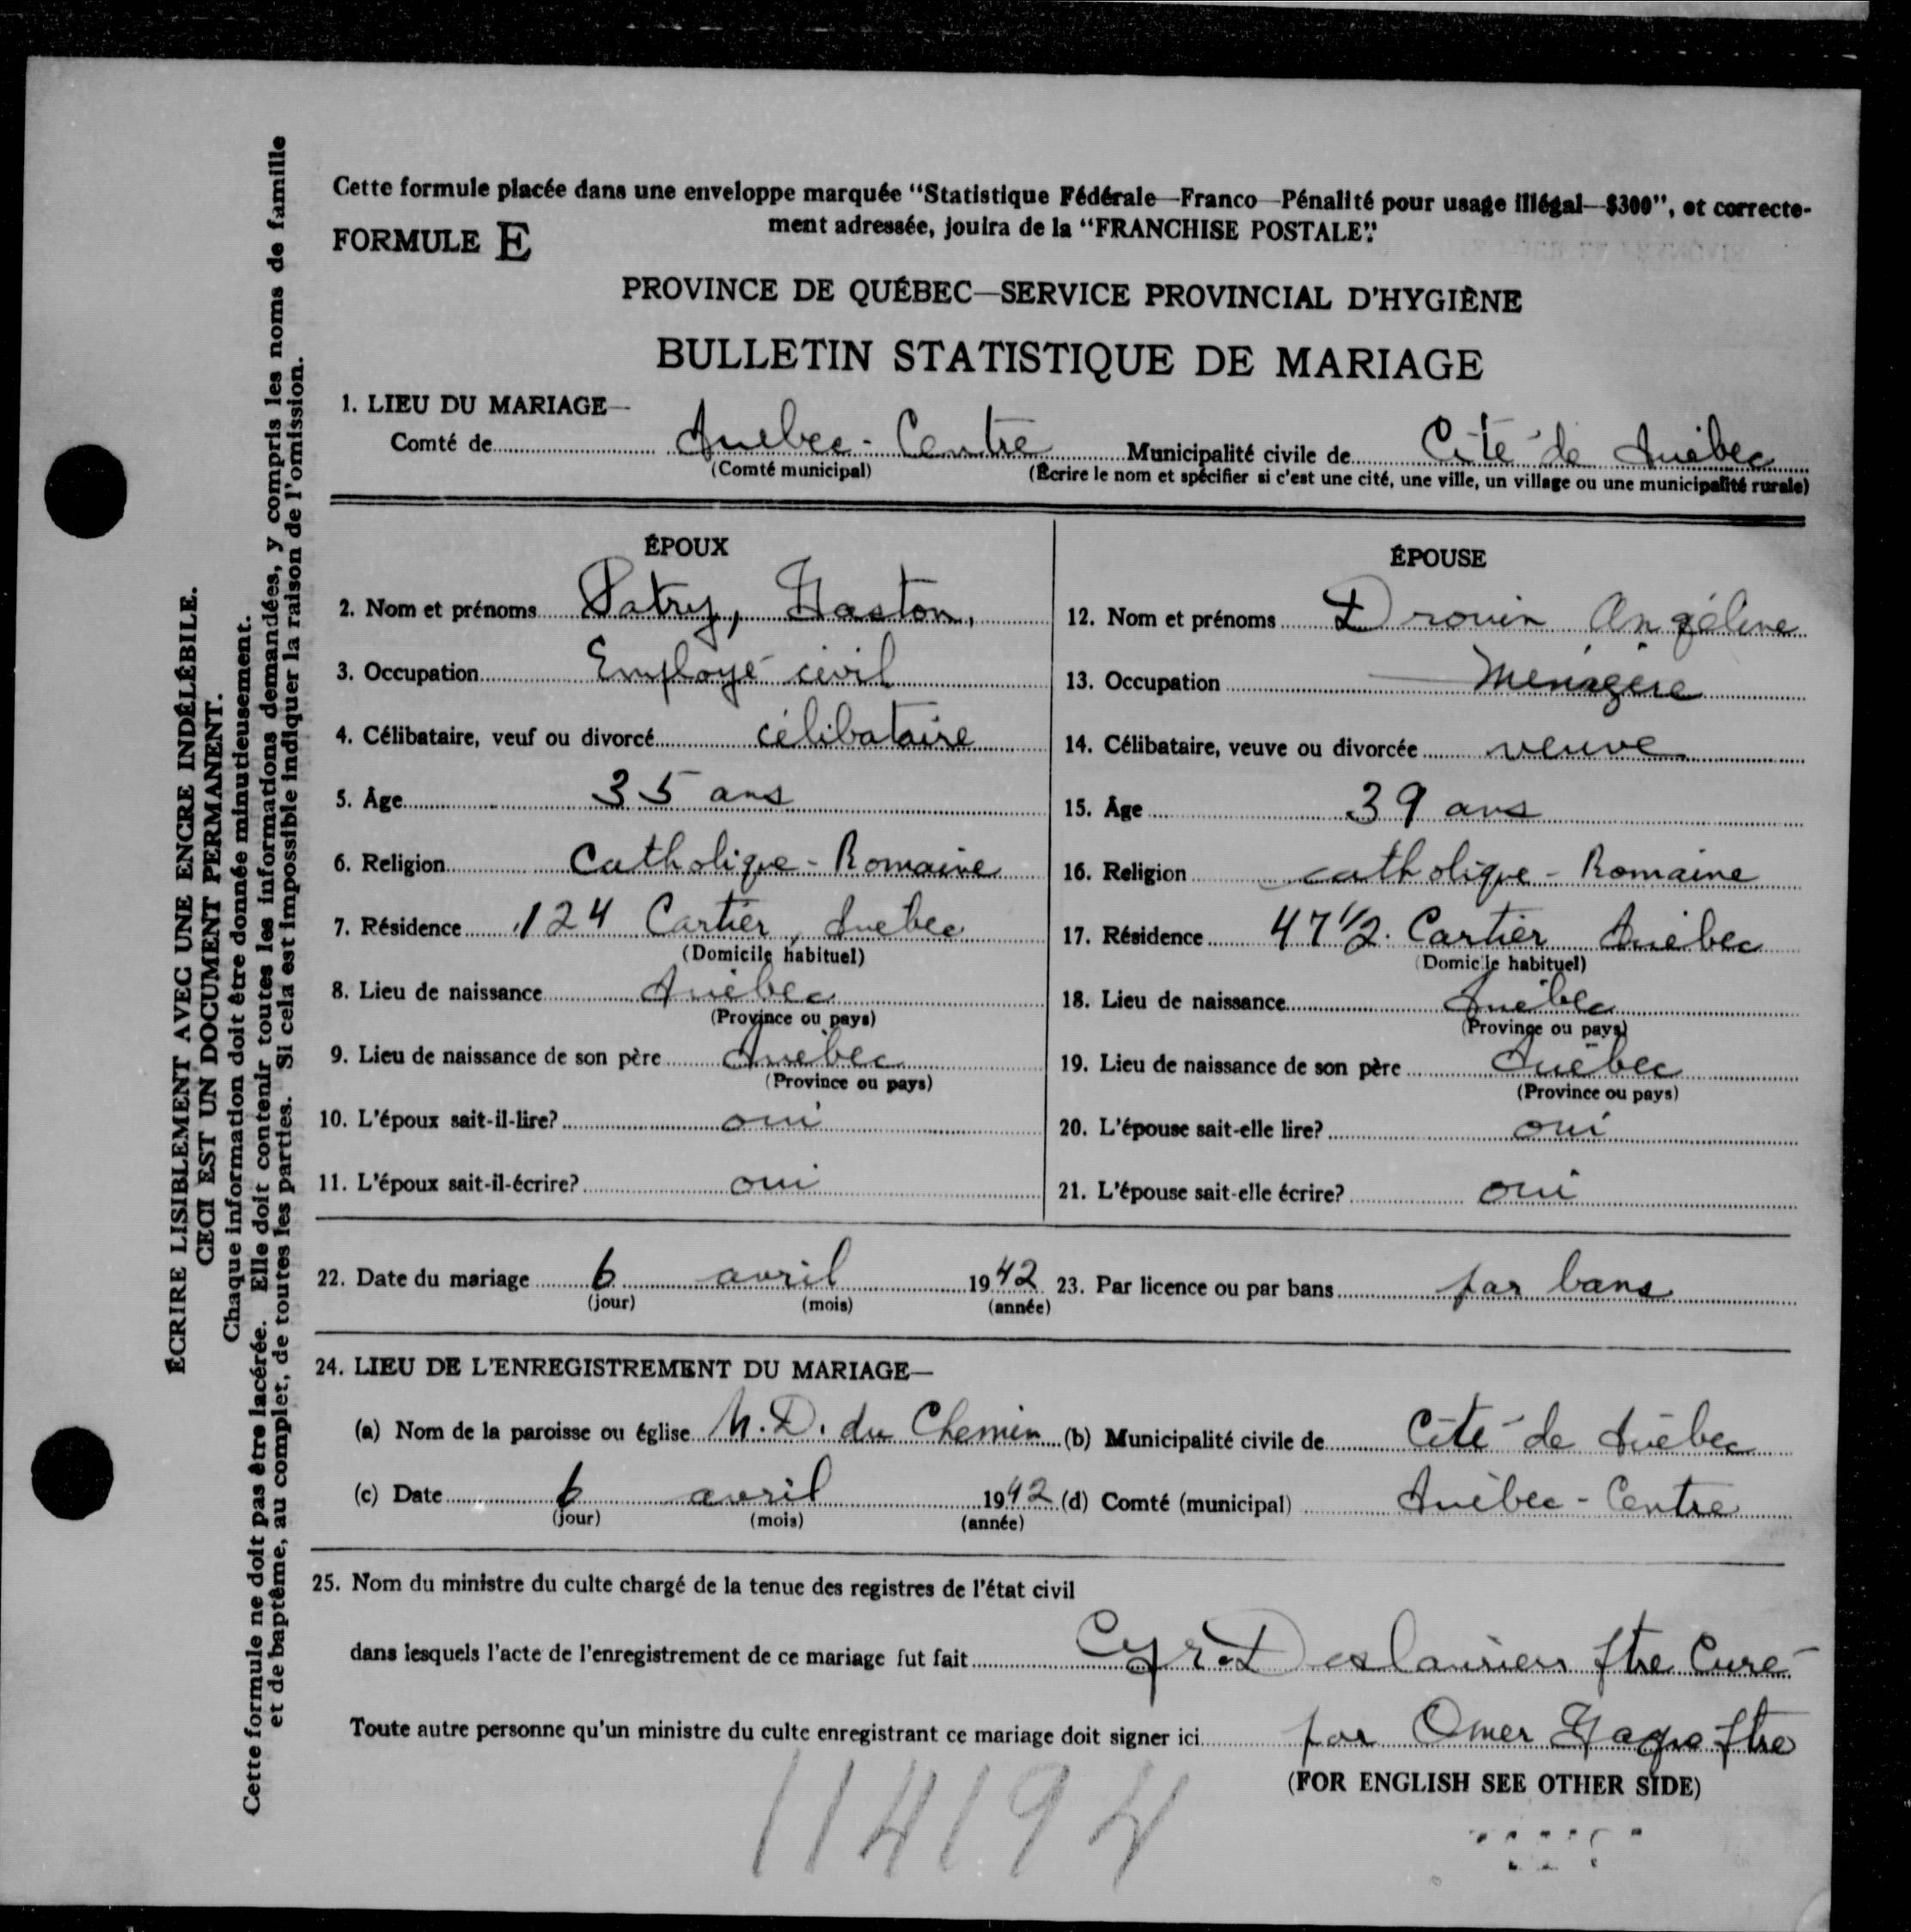 Cette formule placée dans une enveloppe marquée "Statistique Fédérale—Franco—Pénalité pour usage illégal—$300", et correcte-
ment adressée, jouira de la "FRANCHISE POSTALE".
FORMULE E
PROVINCE DE QUÉBEC—SERVICE PROVINCIAL D'HYGIÈNE
BULLETIN STATISTIQUE DE MARIAGE
1. LIEU DU MARIAGE—
Comté de Québec - Centre Municipalité civile de Cité de Québec
(Comté municipal) (Écrire le nom et spécifier si c'est une cité, une ville, un village ou une municipalité rurale)
ÉPOUX
2. Nom et prénoms Patry, Gaston,
3. Occupation Employé civil
4. Célibataire, veuf ou divorcé célibataire
5. Âge 35 ans
6. Religion Catholique - Romaine
7. Résidence 124 Cartier, Québec
(Domicile habituel)
8. Lieu de naissance Québec
(Province ou pays)
9. Lieu de naissance de son père Québec
(Province ou pays)
10. L'époux sait-il-lire? oui
11. L'époux sait-il-écrire? oui
ÉPOUSE
12. Nom et prénoms Drouin Angéline
13. Occupation Ménagère
14. Célibataire, veuve ou divorcée veuve
15. Âge 39 ans
16. Religion catholique - Romaine
17. Résidence 47 1/2 Cartier Québec
(Domicile habituel)
18. Lieu de naissance Québec
(Province ou pays)
19. Lieu de naissance de son père Québec
(Province ou pays)
20. L'épouse sait-elle lire? oui
21. L'épouse sait-elle écrire? oui
22. Date du mariage 6 avril 1942 23. Par licence ou par bans par bans
(jour) (mois) (année)
24. LIEU DE L'ENREGISTREMENT DU MARIAGE—
(a) Nom de la paroisse ou église N. D. du Chemin (b) Municipalité civile de Cité de Québec
(c) Date 6 avril 1942 (d) Comté (municipal) Québec - Centre
(jour) (mois) (année)
25. Nom du ministre du culte chargé de la tenue des registres de l'état civil
dans lesquels l'acte de l'enregistrement de ce mariage fut fait Cyr. Deslauriers ptre Curé
Toute autre personne qu'un ministre du culte enregistrant ce mariage doit signer ici par Omer ptre
(FOR ENGLISH SEE OTHER SIDE)
114194
ÉCRIRE LISIBLEMENT AVEC UNE ENCRE INDÉLÉBILE.
CECI EST UN DOCUMENT PERMANENT.
Chaque information doit être donnée minutieusement.
Cette formule ne doit pas être lacérée. Elle doit contenir toutes les informations demandées, y compris les noms de famille
et de baptême, au complet, de toutes les parties. Si cela est impossible indiquer la raison de l'omission.